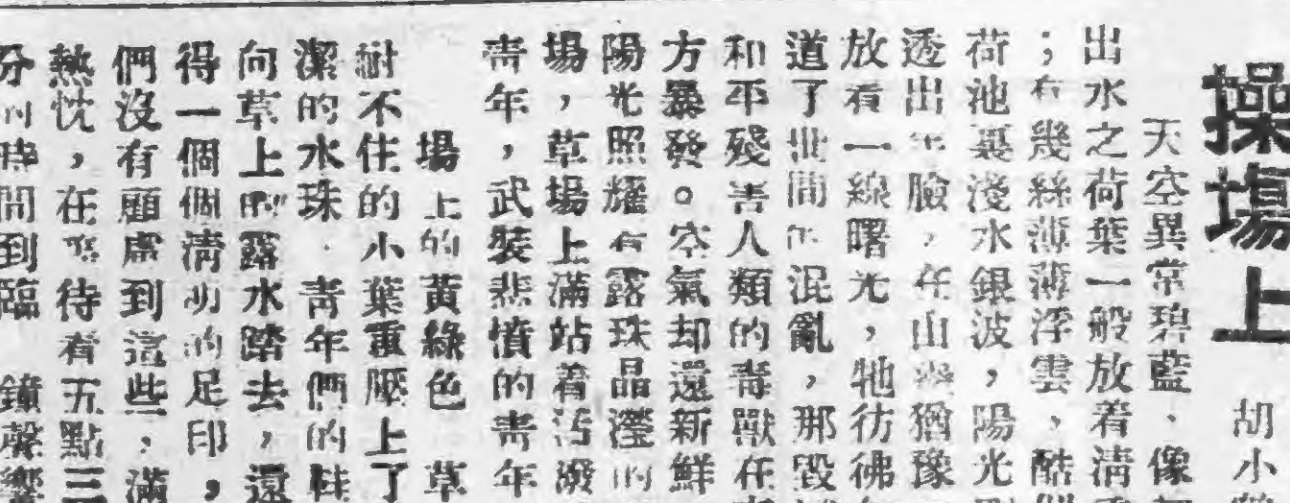 操場上
胡小
天空異常碧藍、像
出水之荷葉一般放着清
；有幾絲薄薄浮雲，酷
荷池裏淺水銀波，陽光
透出半臉，在山巒猶豫
放着一線曙光，牠彷彿
道了世間的混亂，那毀
和平殘害人類的毒獸在
方暴發。空氣却還新鮮
陽光照耀着露珠晶瀅的
場，草場上滿站着活潑
青年，武裝悲憤的青年
場上的黃綠色草
耐不住的小葉重壓上了
潔的水珠．青年們的鞋
向草上的露水踏去，還
得一個個清明的足印，
們沒有顧慮到這些，滿
熱忱，在等待着五點三
分的時間到臨 鐘聲響